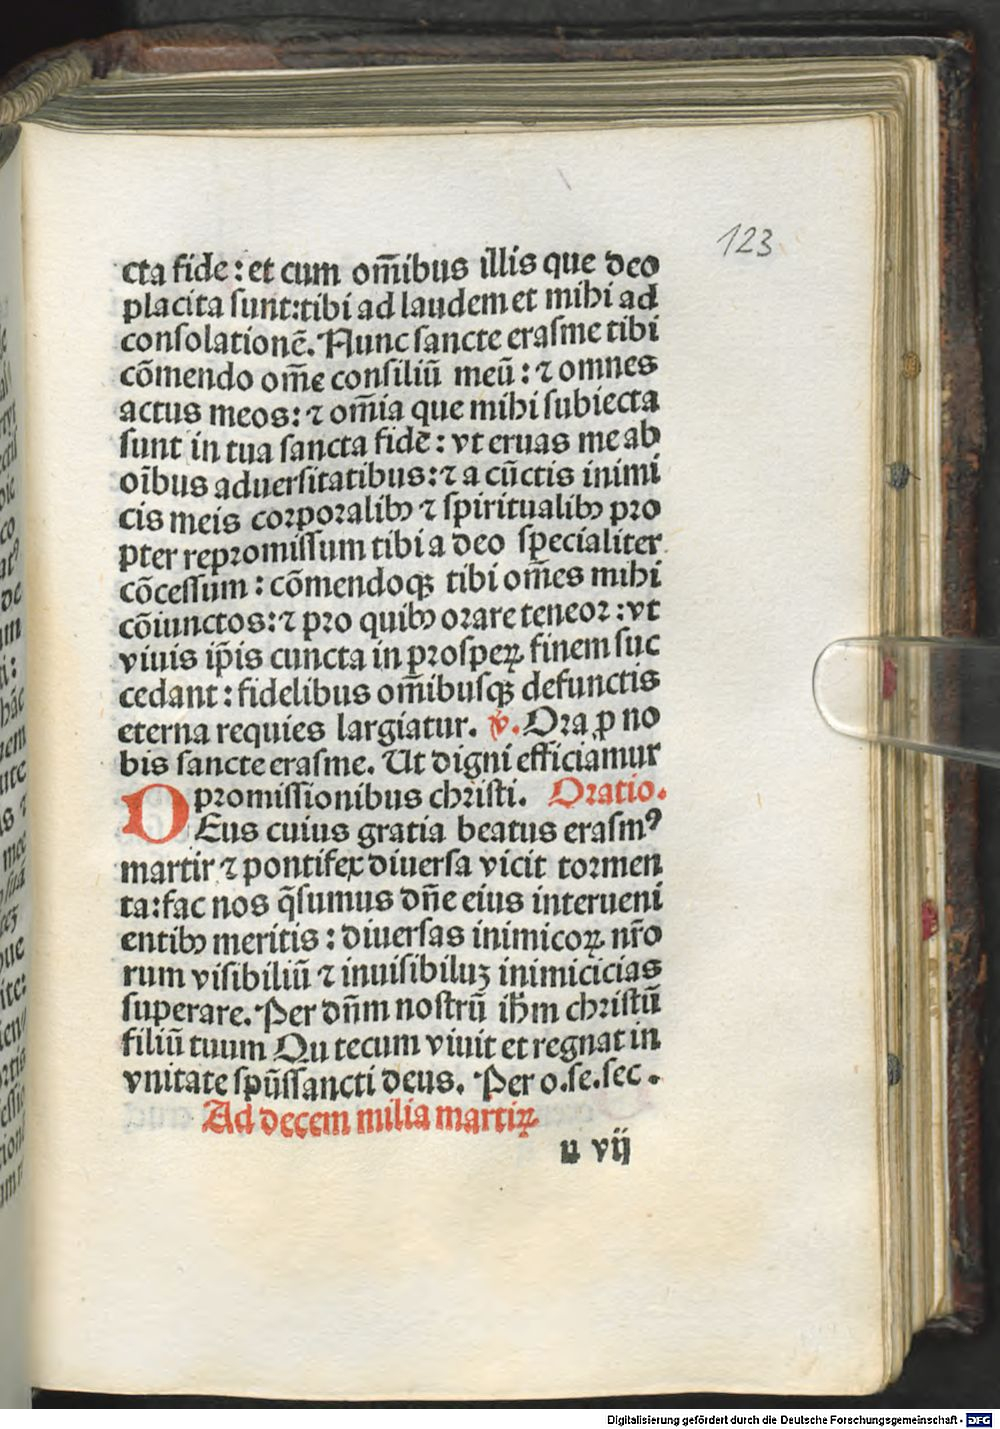 123
cta fide : et cum om̄ibus illis que deo
placita ſunt:tibi ad laudem et mihi ad
conſolationē. Nunc ſancte eraſme tibi
cōmendo om̄e conſiliū meū : ⁊ omnes
actus meos: ⁊ om̄ia que mihi ſubiecta
ſunt in tua ſancta fide : vt eruas me ab
oībus aduerſitatibus: ⁊ a cūctis inimi
cis meis coꝛpoꝛalibꝰ ⁊ ſpiritualibꝰ pꝛo
pter repꝛomiſſum tibi a deo ſpecialiter
cōceſſum : cōmendoqꝫ tibi om̄es mihi
cōiunctos: ⁊ pꝛo quibꝰ oꝛare teneoꝛ : vt
viuis ip̄is cuncta in pꝛoſpeꝝ finem ſuc
cedant : fidelibus om̄ibuſqꝫ defunctis
eterna requies largiatur. ℣. Oꝛa ꝓ no
bis ſancte eraſme. Ut digni efficiamur
pꝛomiſſionibus chꝛiſti. Oꝛatio.
DEus cuius gratia beatus eraſmꝰ
martir ⁊ pontifex diuerſa vicit toꝛmen
ta:fac nos q̄ſumus dn̄e eius interueni
entibꝰ meritis : diuerſas inimicoꝝ nr̄o
rum viſibiliū ⁊ inuiſibiluꝫ inimicicias
ſuperare. Per dn̄m noſtrū ih̄m chꝛiſtū
filiū tuum Qu tecum viuit et regnat in
vnitate ſpūſſancti deus. Per o.ſe.ſec.
Ad decem milia martiꝝ
u vij
Digitalisierung gefördert durch die Deutsche Forschungsgemeinschaft - DFG